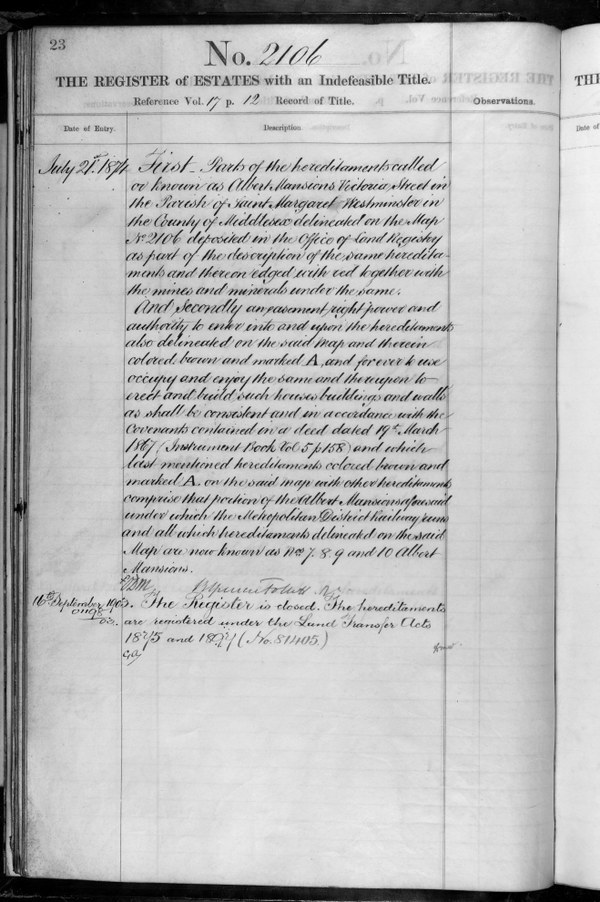 23
No. 2106
THE REGISTER of ESTATES with an Indefeasible Title.
Reference Vol. 17 p. 12 Record of Title.
Observations.
Date of Entry.
Description.
July 21st 1874
First Parts of the hereditaments called
or known as Albert Mansions Victoria Street in
the Parish of Saint Margaret Westminster in
the County of Middlesex delineated on the Map
No 2106 deposited in the Office of Land Registry
as part of the description of the same heredita-
ments and thereon edged with red together with
the mines and minerals under the same.
And Secondly an easement right power and
authority to enter into and upon the hereditaments
also delineated on the said Map and therein
colored brown and marked A, and for ever to use
occupy and enjoy the same and thereupon to
erect and build such houses buildings and walls
as shall be consistent and in accordance with the
Covenants contained in a deed dated 19th March
1867 (Instrument Book Vol 5 p 158) and which
last mentioned hereditaments colored brown and
marked A. on the said map with other hereditaments
comprise that portion of the Albert Mansions aforesaid
under which the Metropolitan District Railway runs
and all which hereditaments delineated on the said
Map are now known as Nos 7. 8. 9 and 10 Albert
Mansions.
16th September 1903.
The Register is closed. The hereditaments
are registered under the Land Transfer Acts
1875 and 1897 (No. 81405)
THE
Date of